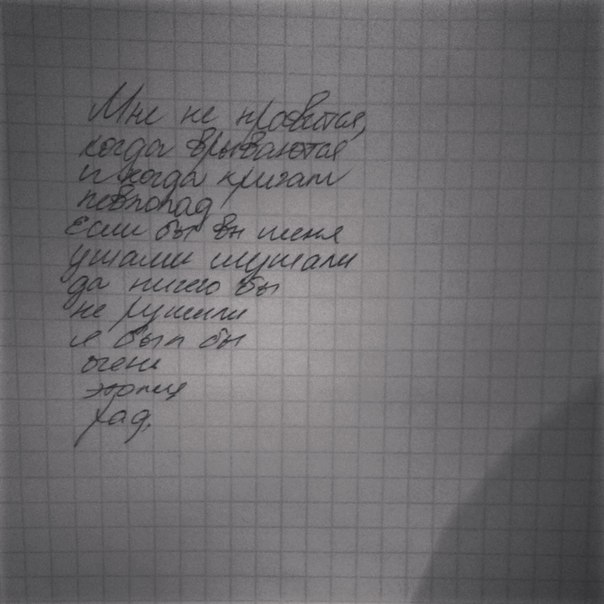 Мне не нравится,
когда врываются
и когда кричат
невпопад
Если бы вы меня
ушами слушали
да ничего бы
не рушили
я был бы
очень
этому
рад.